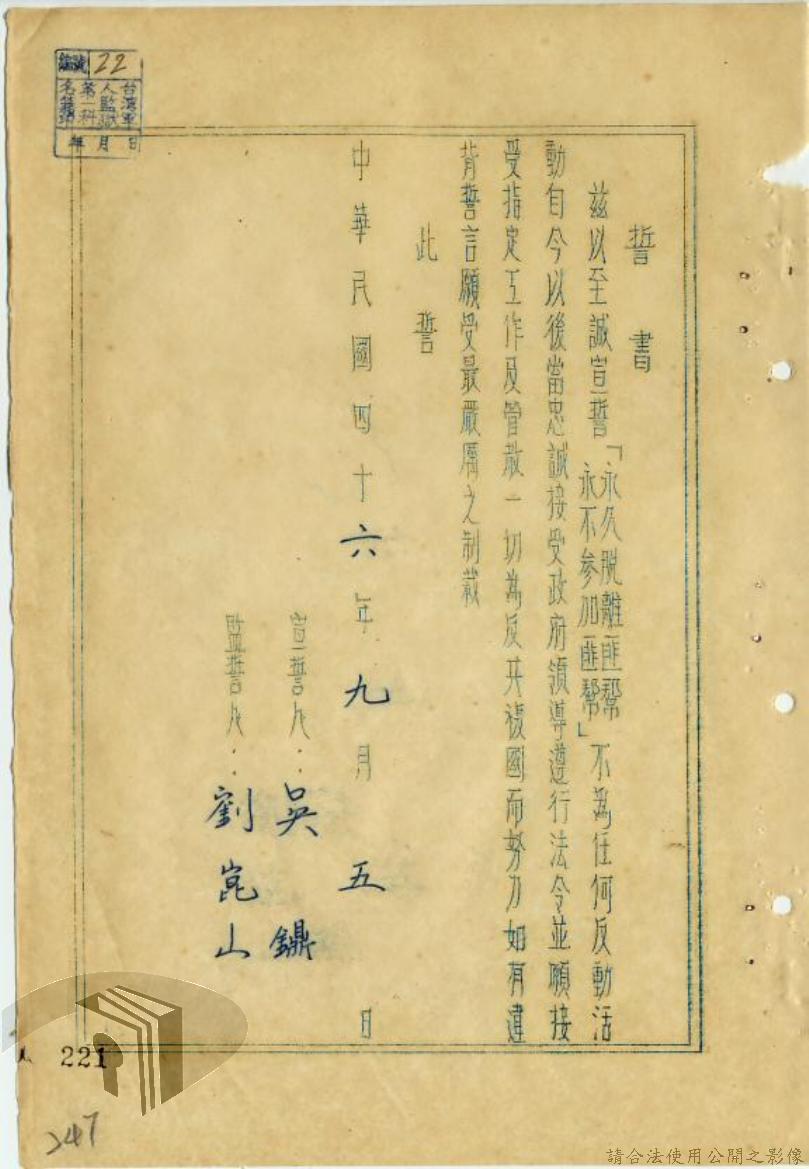 誓書
茲以至誠宣誓「永久脫離匪幫
永不參加匪幫」不為任何反動活
動自今以後當忠誠接受政府領導遵行法令並願接
受指定工作及管敎一切為反共復國而努力如有違
背誓言願受最嚴厲之制裁
此誓
中華民國四十六年九月五日
宣誓人：吳鐤
監誓人：劉崑山
編號 22
台灣軍
人監獄
第一科
名籍股
年月日
221
247
請合法使用公開之影像